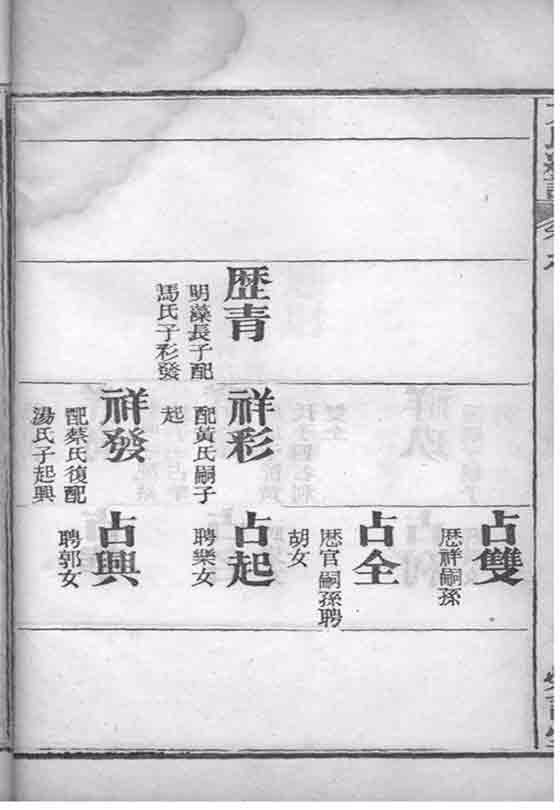 歴青
明藻長子配
馬氏子彩發
祥彩
配黃氏嗣子
起
祥發
配蔡氏復配
湯氏子起興
占雙
歴祥嗣孫
占全
歴官嗣孫聘
胡女
占起
聘樂女
占興
聘郭女